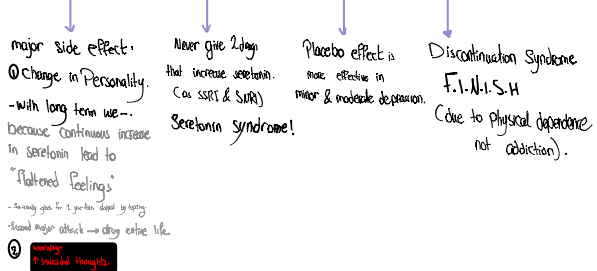 major side effect.
① Change in Personality.
- With long term use -.
because continuous increase
in seretonin lead to
"flattered feelings"
- Second major attack → drug entire life.
②
warning.
↑ suicidal thoughts.
Never give 2 drugs
that increase seretonin.
(as SSRI & SNRI)
Seretonin syndrome!
Placebo effect is
more effective in
minor & moderate depression.
Discontinuation Syndrome
F.I.N.I.S.H
(due to physical dependence
not addiction).